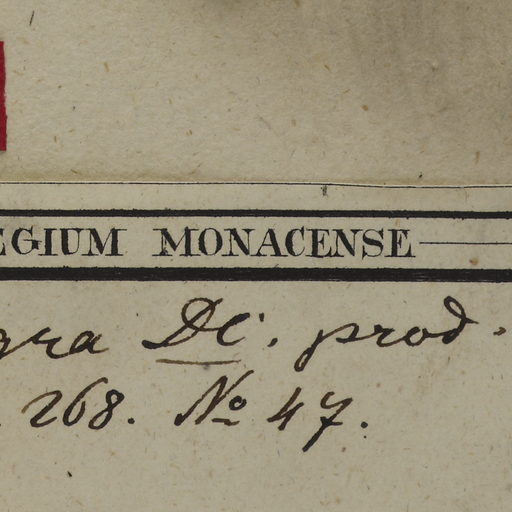 EGIUM MONACENSE
gra DC. prod.
268. No 47.